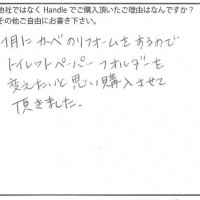 他社ではなく Handle でご購入頂いたご理由はなんですか？
その他ご自由にお書き下さい。
1月にカベのリフォームをするので
トイレットペーパーフォルダーを
変えたいと思い購入させて
頂きました.